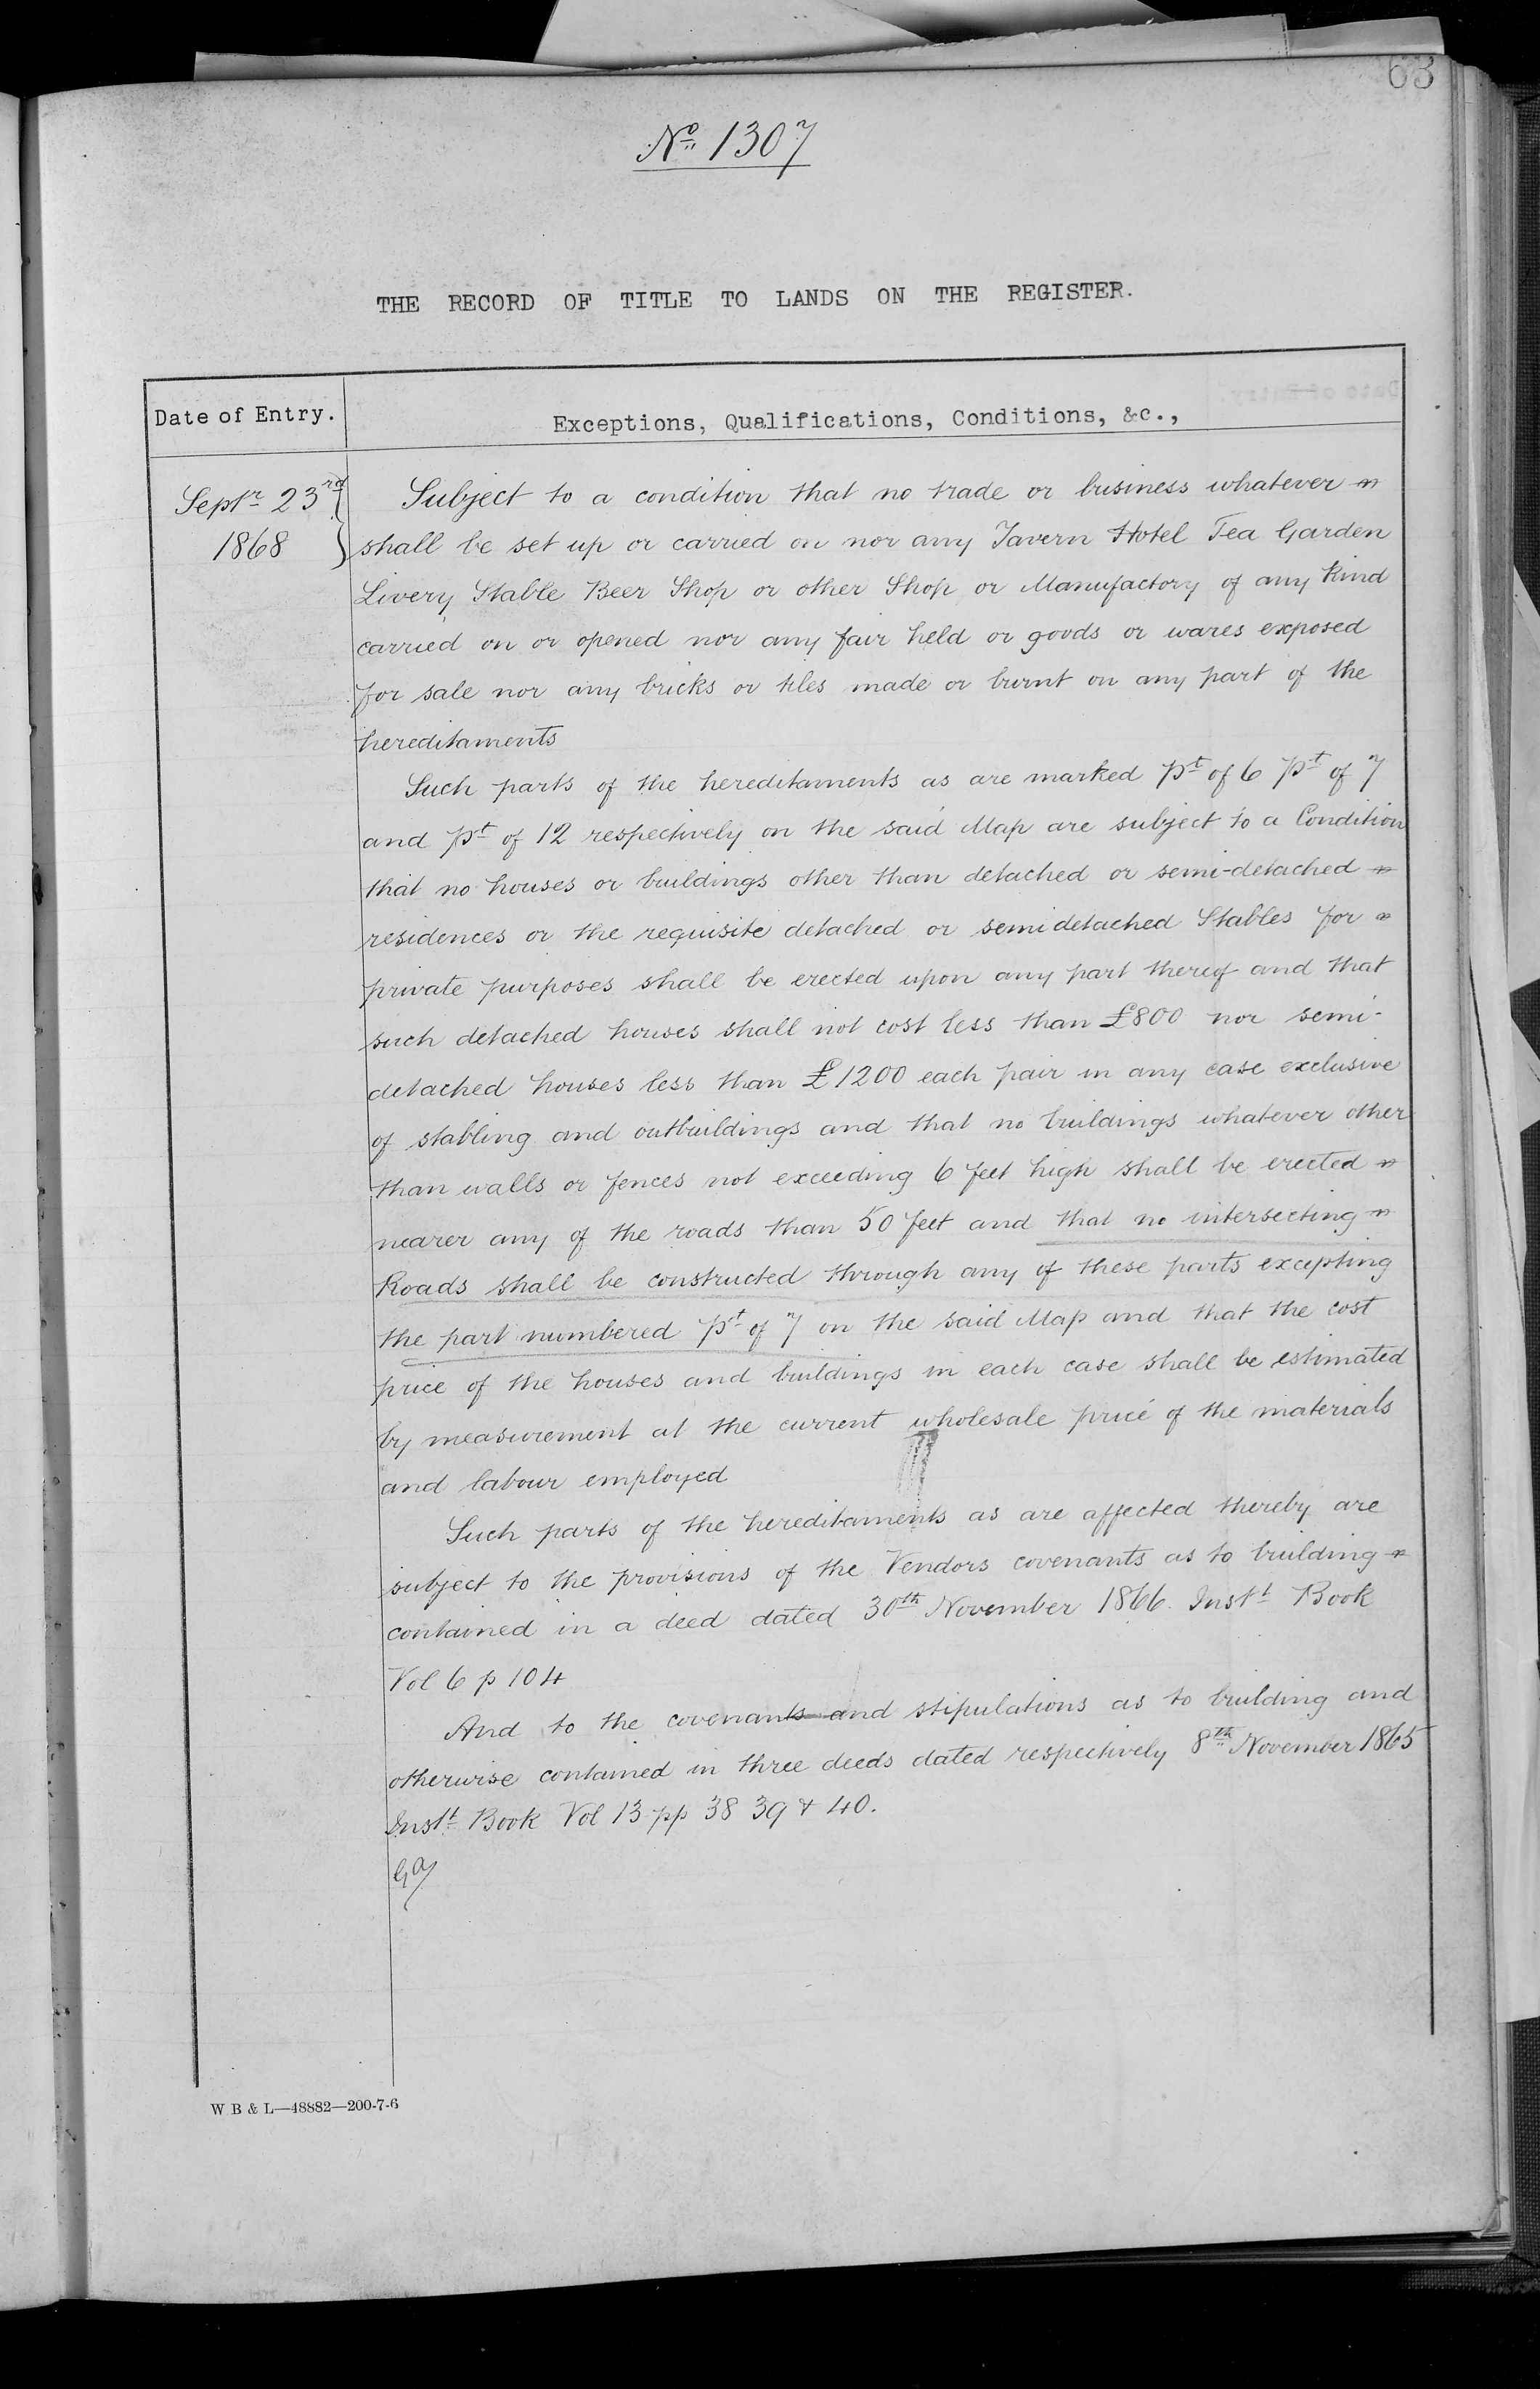 63
No. 1307
THE RECORD OF TITLE TO LANDS ON THE REGISTER.
Date of Entry.
Exceptions, Qualifications, Conditions, &c.,
Septr 23rd
1868
Subject to a condition that no trade or business whatever
shall be set up or carried on nor any Tavern Hotel Tea Garden
Livery Stable Beer Shop or other Shop or Manufactory of any kind
carried on or opened nor any fair held or goods or wares exposed
for sale nor any bricks or tiles made or burnt on any part of the
hereditaments
Such parts of the hereditaments as are marked pt of 6 pt of 7
and pt of 12 respectively on the said Map are subject to a Condition
that no houses or buildings other than detached or semi-detached
residences or the requisite detached or semidetached Stables for
private purposes shall be erected upon any part thereof and that
such detached houses shall not cost less than £800 nor semi-
detached houses less than £1200 each pair in any case exclusive
of stabling and outbuildings and that no buildings whatever other
than walls or fences not exceeding 6 feet high shall be erected
nearer any of the roads than 50 feet and that no intersecting
Roads shall be constructed through any of these parts excepting
the part numbered pt of 7 on the said Map and that the cost
price of the houses and buildings in each case shall be estimated
by measurement at the current wholesale price of the materials
and labour employed
Such parts of the hereditaments as are affected thereby are
subject to the provisions of the Vendors covenants as to building
contained in a deed dated 30th November 1866. Instt Book
Vol 6 p 104
And to the covenants and stipulations as to building and
otherwise contained in three deeds dated respectively 8th November 1865
Instt Book Vol 13 pp 38 39 & 40.
W B & L—48882—200-7-6